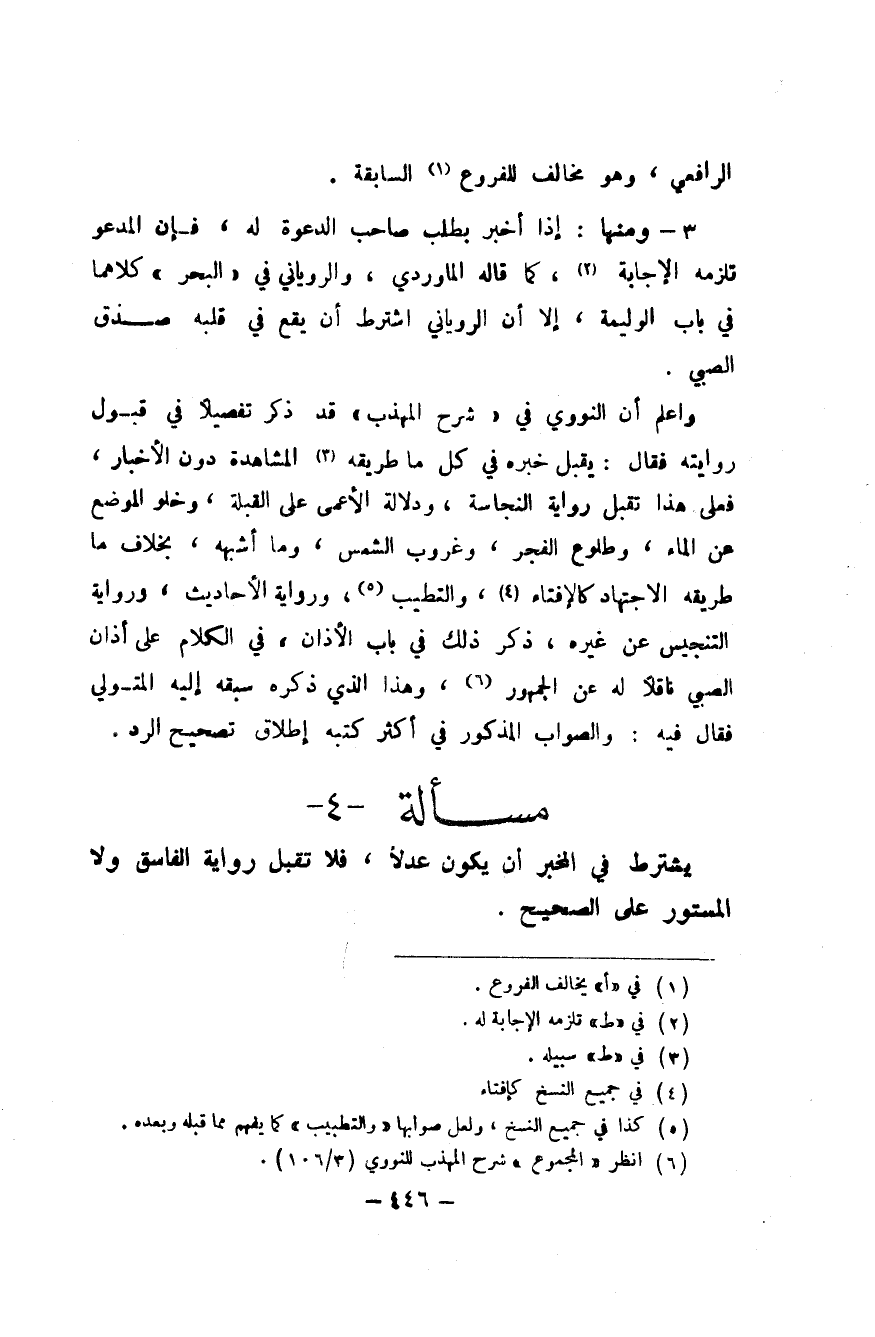 الرافعي ، وهو مخالف للفروع (١) السابقة .
٣ - ومنها : إذا أخبر بطلب صاحب الدعوة له ، فإن المدعو
تلزمه الإجابة (٢) ، كما قاله الماوردي ، والروياني في « البحر » كلاهما
في باب الوليمة ، إلا أن الروياني اشترط أن يقع في قلبه صـــدق
الصبي .
واعلم أن النووي في « شرح المهذب » قد ذكر تفصيلاً في قبول
روايته فقال : يقبل خبره في كل ما طريقه (٣) المشاهدة دون الأخبار ،
فعلى هذا تقبل رواية النجاسة ، ودلالة الأعمى على القبلة ، وخلو الموضع
عن الماء ، وطلوع الفجر ، وغروب الشمس ، وما أشبهه ، بخلاف ما
طريقه الاجتهاد كالإفتاء (٤) ، والتطيب (٥) ، ورواية الأحاديث ، ورواية
التنجيس عن غيره ، ذكر ذلك في باب الأذان ، في الكلام على أذان
الصبي ناقلاً له عن الجمهور (٦) ، وهذا الذي ذكره سبقه إليه المتولي
فقال فيه : والصواب المذكور في أكثر كتبه إطلاق تصحيح الرد .
مســـألة -٤-
يشترط في المخبر أن يكون عدلاً ، فلا تقبل رواية الفاسق ولا
المستور على الصحيح .
(١) في «أ» يخالف الفروع .
(٢) في «ط» تلزمه الإجابة له .
(٣) في «ط» سبيله .
(٤) في جميع النسخ كإفتاء
(٥) كذا في جميع النسخ ، ولعل صوابها « والتطبيب » كما يفهم مما قبله وبعده .
(٦) انظر « المجموع » شرح المهذب للنووي (٣/١٠٦) .
- ٤٤٦ -